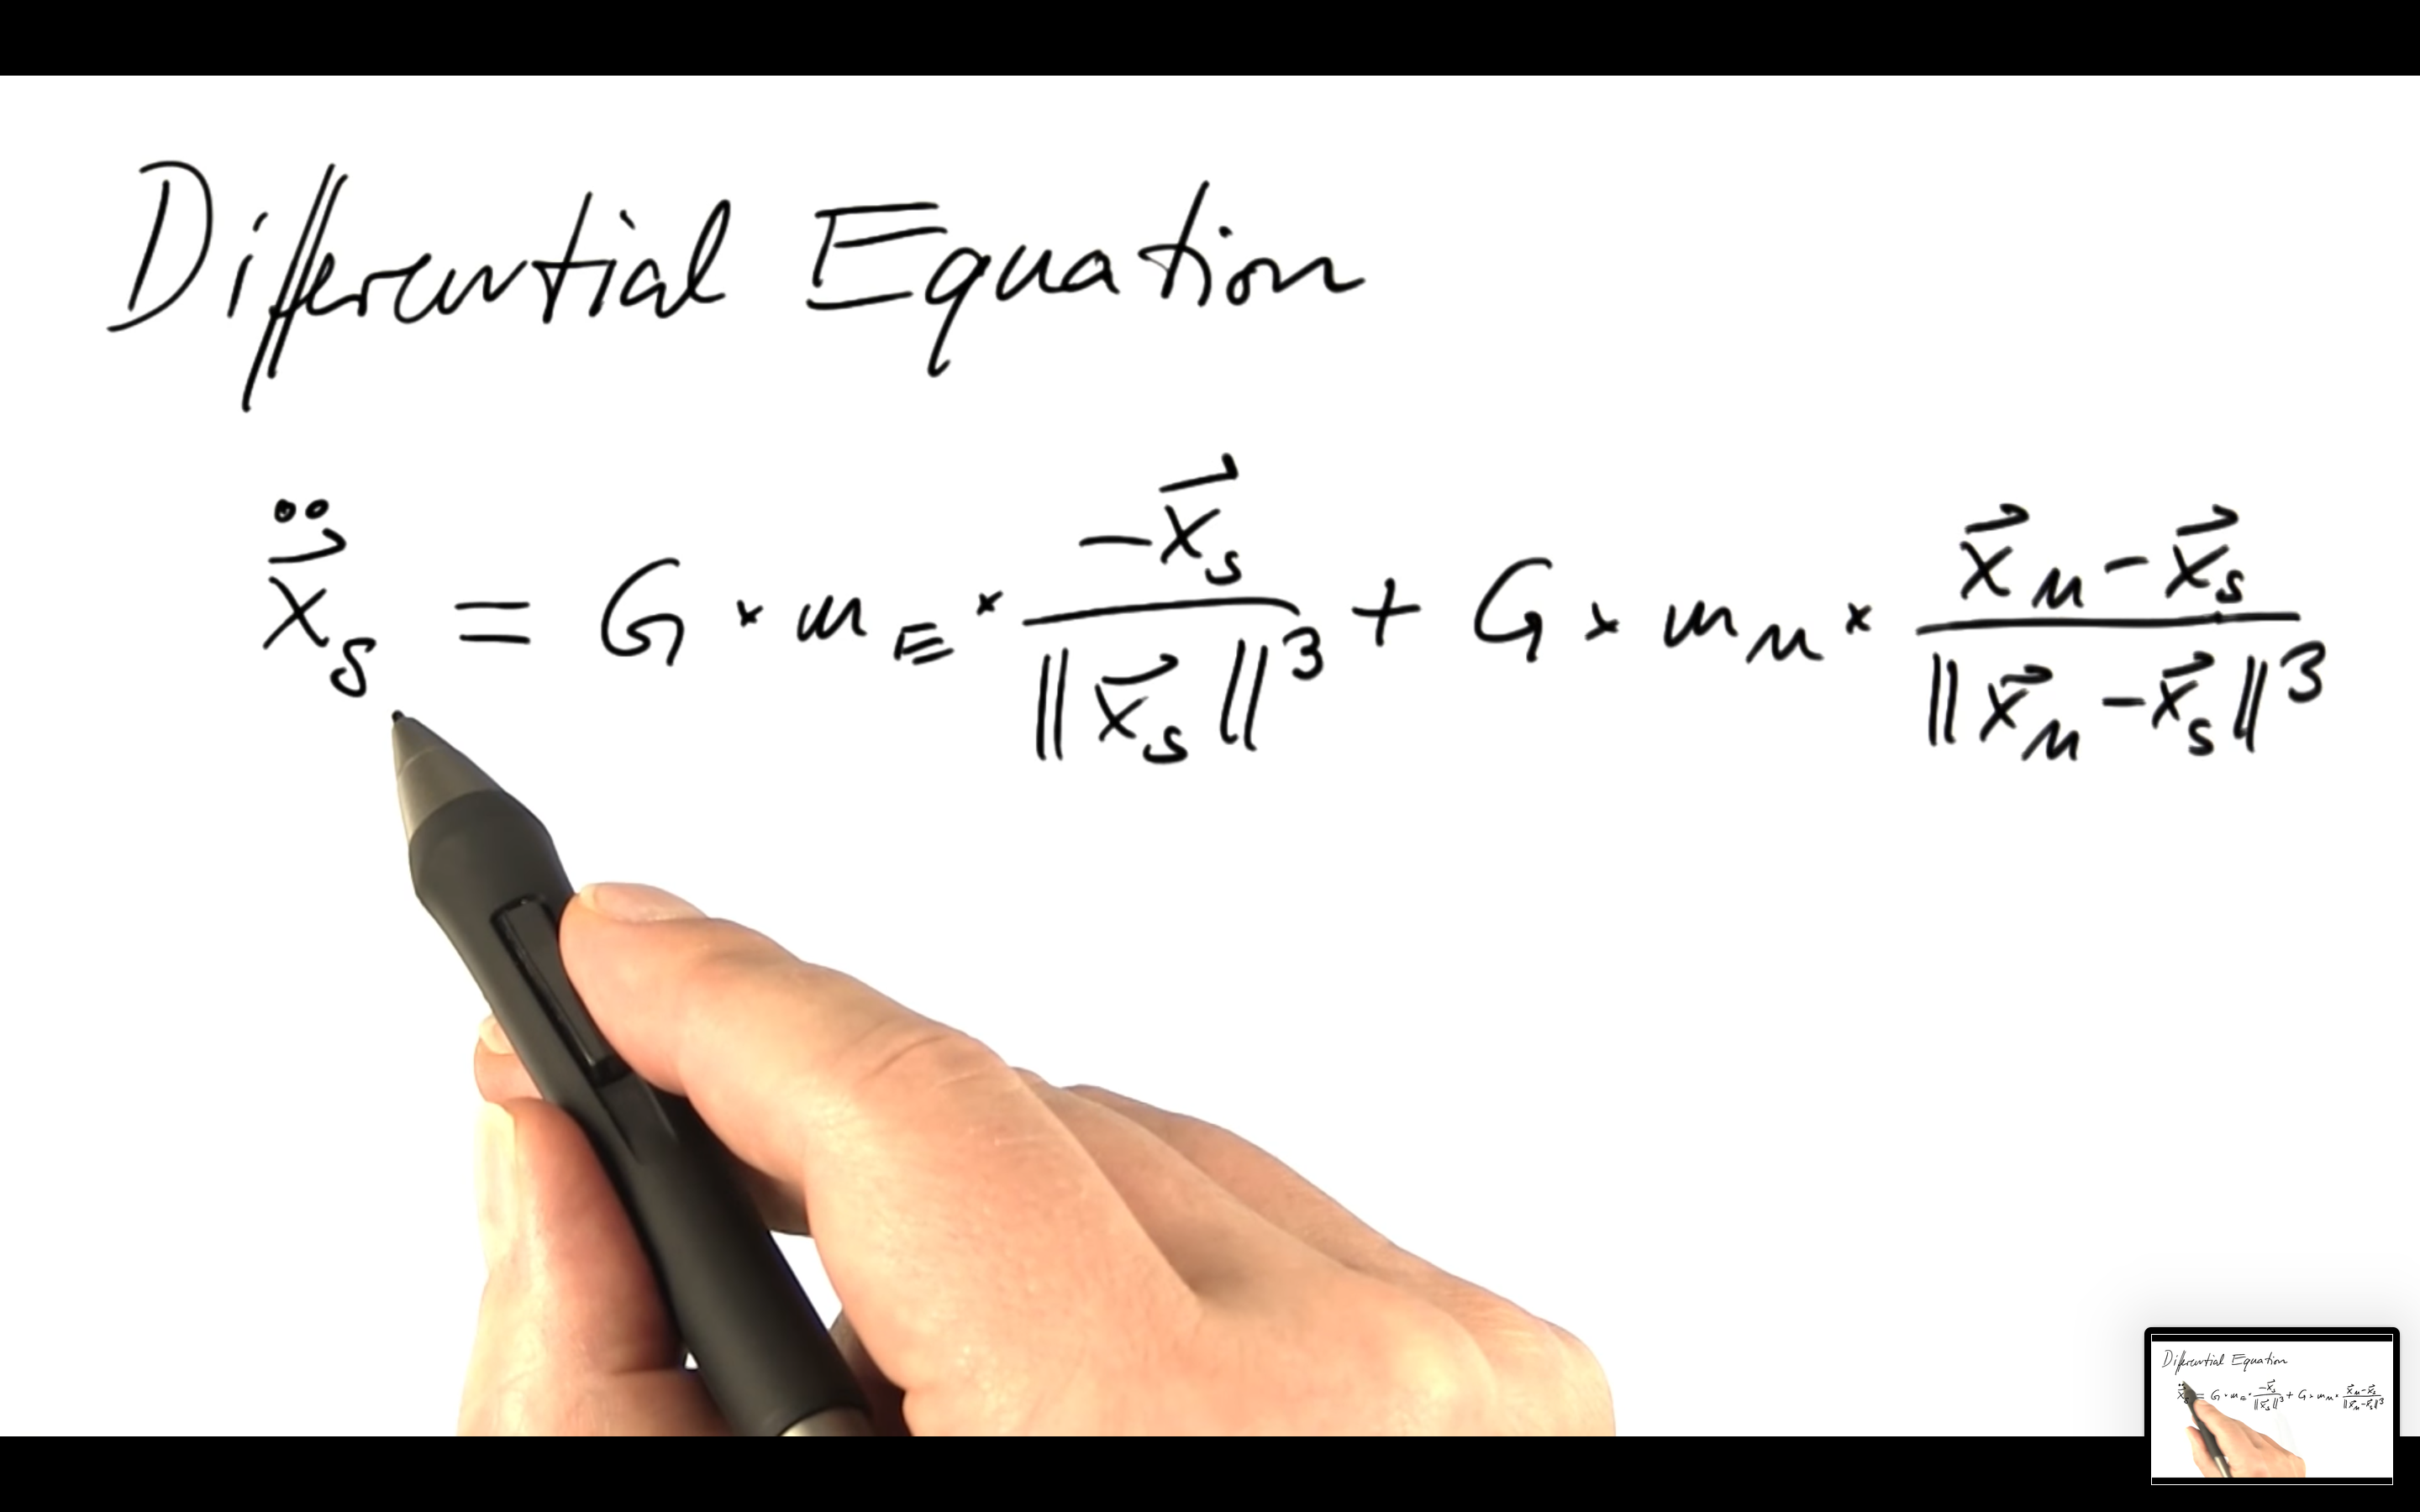 Differential Equation
$\ddot{\vec{x}}_S = G \times m_E \times \frac{-\vec{x}_S}{\|\vec{x}_S\|^3} + G \times m_M \times \frac{\vec{x}_M - \vec{x}_S}{\|\vec{x}_M - \vec{x}_S\|^3}$
Differential Equation
$\ddot{\vec{x}}_S = G \times m_E \times \frac{-\vec{x}_S}{\|\vec{x}_S\|^3} + G \times m_M \times \frac{\vec{x}_M - \vec{x}_S}{\|\vec{x}_M - \vec{x}_S\|^3}$